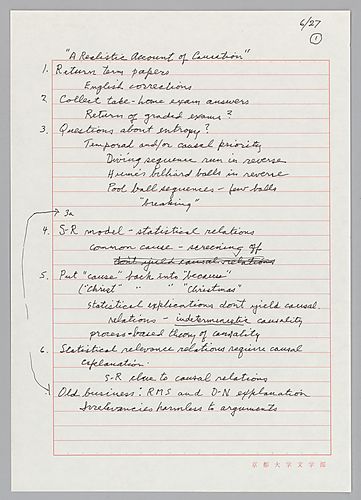 6/27
1
"A Realistic Account of Causation"
1. Return term papers
English corrections
2. Collect take-home exam answers
Return of graded exams?
3. Questions about entropy?
Temporal and/or causal priority
Diving sequence run in reverse
Hume's billiard balls in reverse
Pool ball sequences - few balls
"breaking"
3a
4. S-R model - statistical relations
common cause - screening off
don't yield causal relations
5. Put "cause" back into "because"
("Christ" " " "Christmas"
statistical explications don't yield causal
relations - indeterministic causality
process-based theory of causality
6. Statistical relevance relations require causal
explanation.
S-R clue to causal relations
Old business: RMS and D-N explanation
Irrelevancies harmless to arguments
京都大学文学部